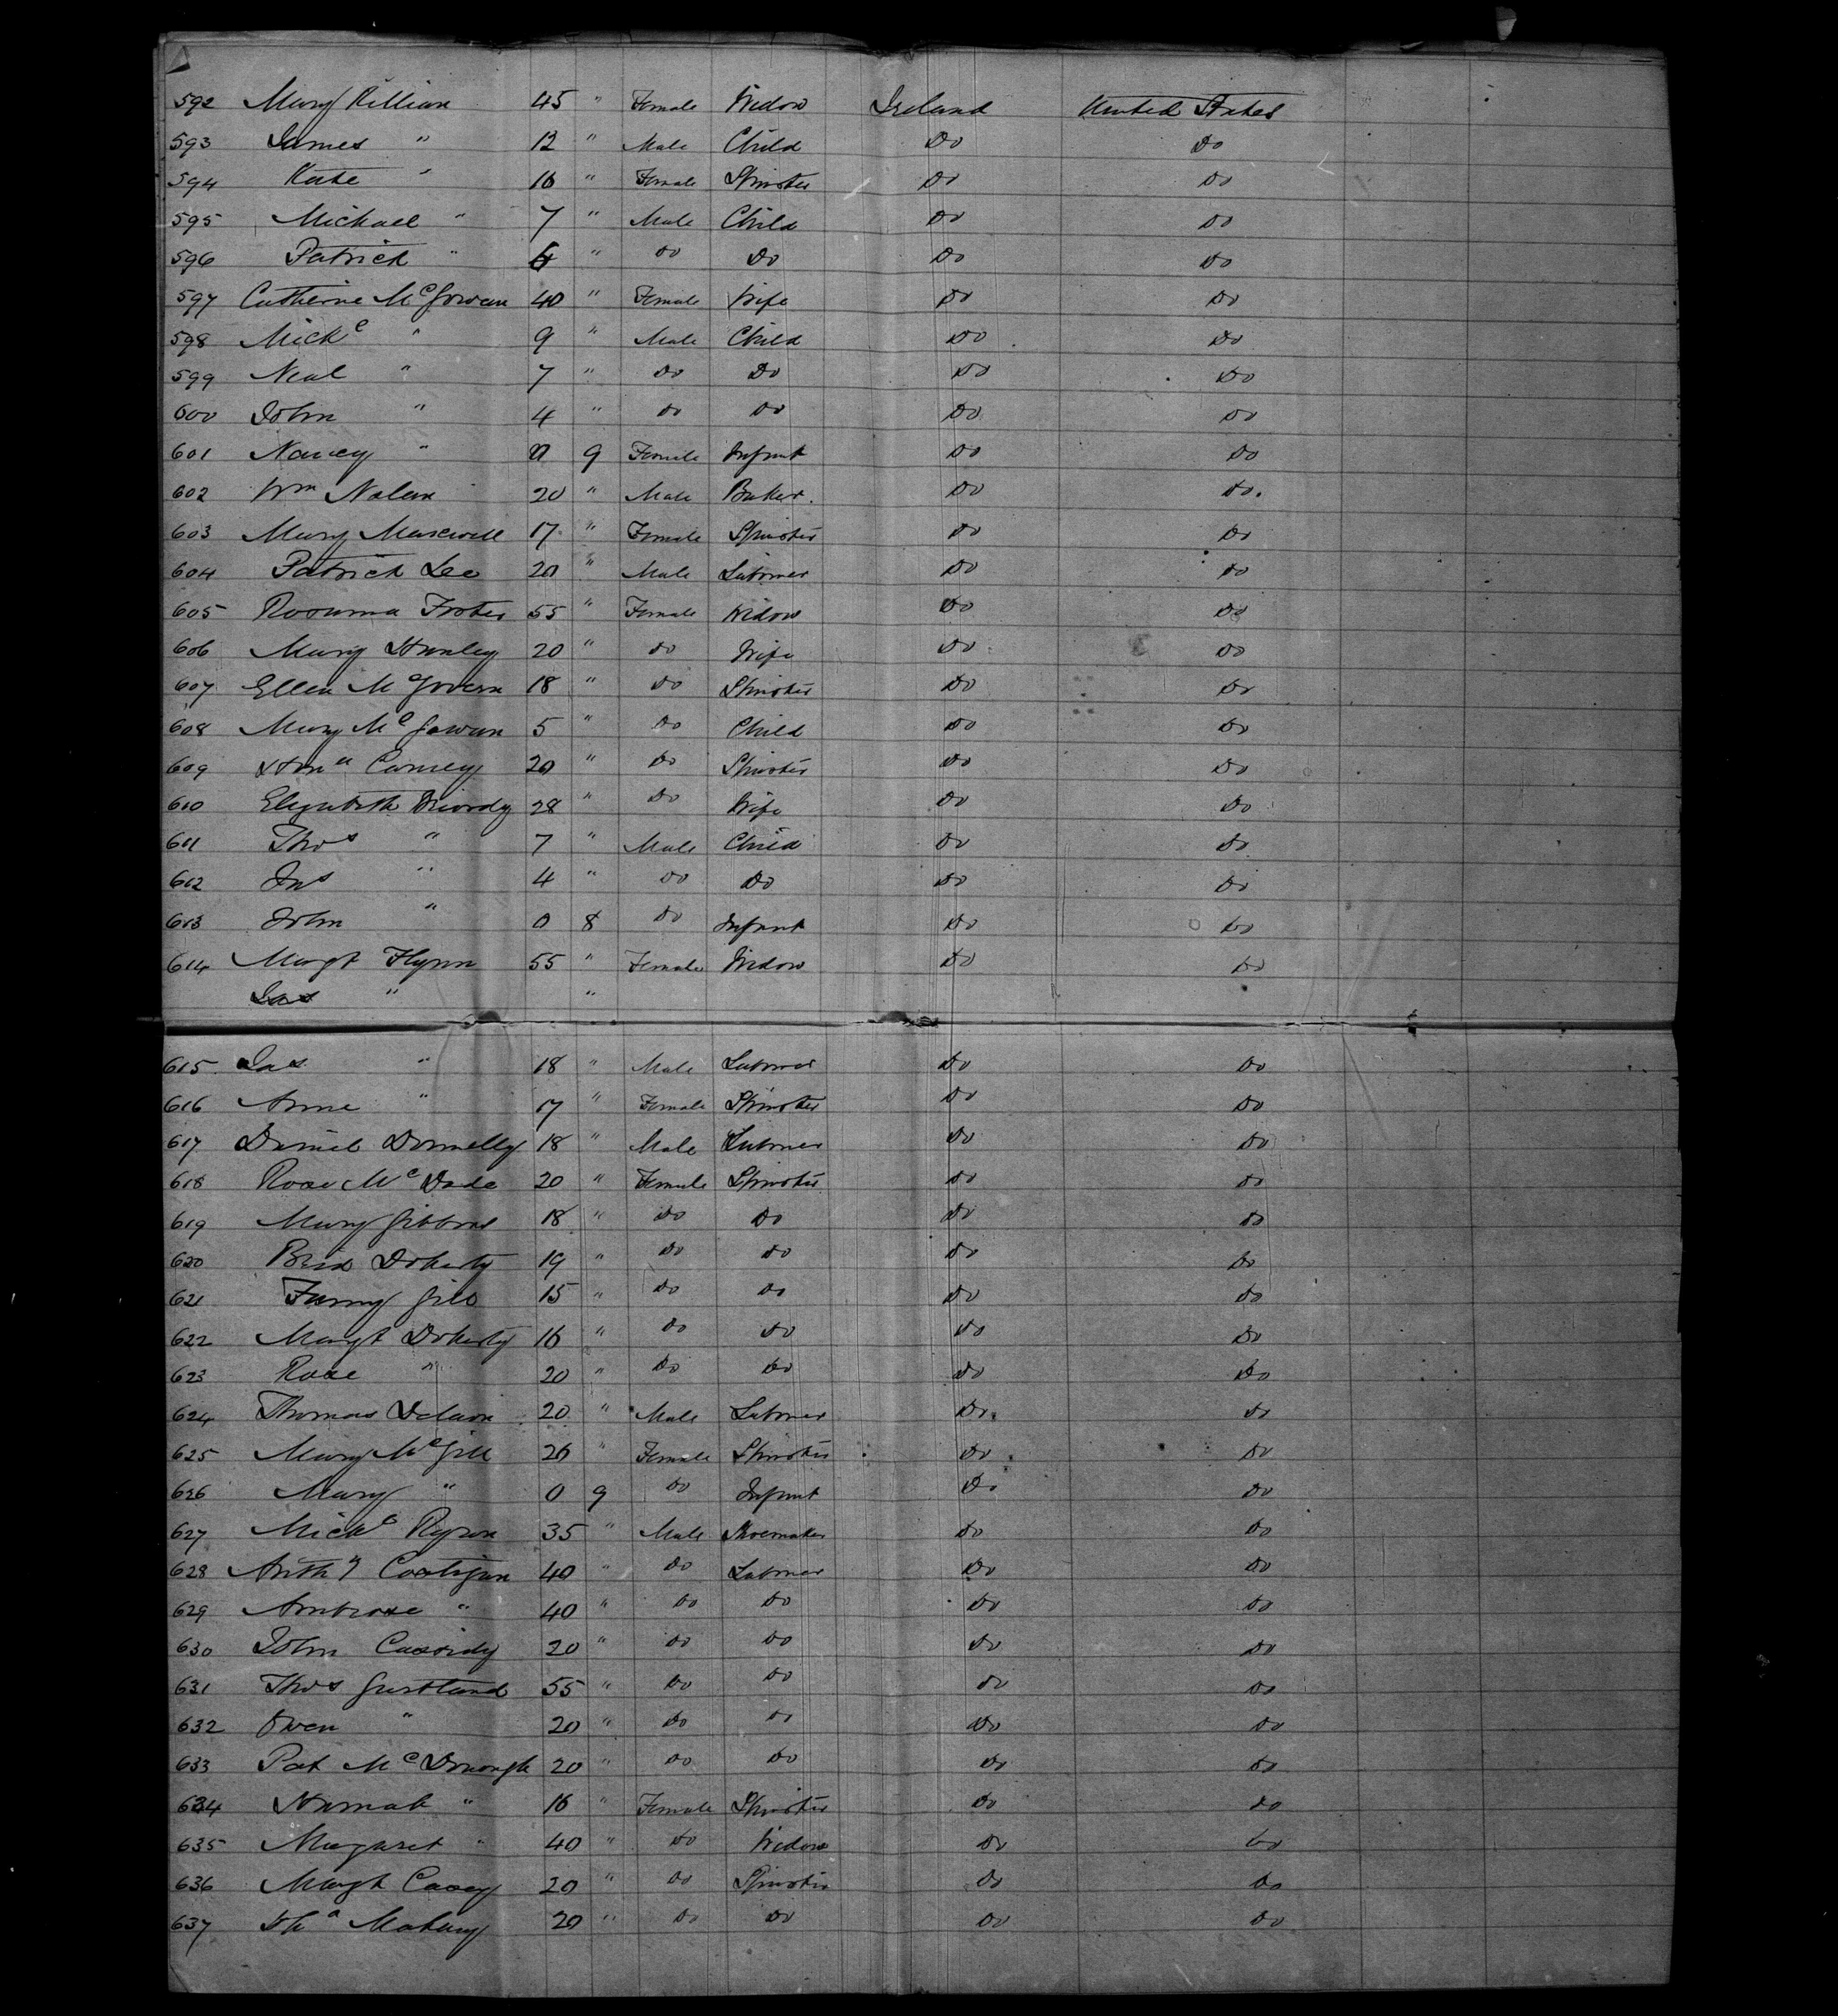 592 Mary Killian 45 " Female Widow Ireland United States
593 James " 12 " Male Child Do Do
594 Kate " 16 " Female Spinster Do Do
595 Michael " 7 " Male Child Do Do
596 Patrick " 6 " Do Do Do Do
597 Catherine McGowan 40 " Female Wife Do Do
598 Michl " 9 " Male Child Do Do
599 Neal " 7 " Do Do Do Do
600 John " 4 " Do Do Do Do
601 Nancy " 0 9 Female Infant Do Do
602 Wm Nolan 20 " Male Baker Do Do
603 Mary Maxwell 17 " Female Spinster Do Do
604 Patrick Lee 20 " Male Laborer Do Do
605 Rosanna Foster 55 " Female Widow Do Do
606 Mary Hanley 20 " Do Wife Do Do
607 Ellen McGovern 18 " Do Spinster Do Do
608 Mary McGowan 5 " Do Child Do Do
609 Honn Carney 20 " Do Spinster Do Do
610 Elizabeth 28 " Do Wife Do Do
611 Thos " 7 " Male Child Do Do
612 Jas " 4 " Do Do Do Do
613 John " 0 8 Do Infant Do Do
614 Margt Flynn 55 " Female Widow Do Do
Jas " "
615 Jas " 18 " Male Laborer Do Do
616 Anne " 17 " Female Spinster Do Do
617 Daniel Donnelly 18 " Male Laborer Do Do
618 Rose McDade 20 " Female Spinster Do Do
619 Mary Gibbons 18 " Do Do Do Do
620 Brid Doherty 19 " Do Do Do Do
621 Fanny Gill 15 " Do Do Do Do
622 Margt Doherty 16 " Do Do Do Do
623 Rose " 20 " Do Do Do Do
624 Thomas 20 " Male Laborer Do Do
625 Mary McGill 20 " Female Spinster Do Do
626 Mary " 0 9 Do Infant Do Do
627 Michl Ryan 35 " Male Shoemaker Do Do
628 Anthy Costigan 40 " Do Laborer Do Do
629 Ambrose " 40 " Do Do Do Do
630 John Cassidy 20 " Do Do Do Do
631 Thos 55 " Do Do Do Do
632 Owen " 20 " Do Do Do Do
633 Pat McDonough 20 " Do Do Do Do
634 Hannah " 16 " Female Spinster Do Do
635 Margaret " 40 " Do Widow Do Do
636 Margt Casey 20 " Do Spinster Do Do
637 Mahony 20 " Do Do Do Do